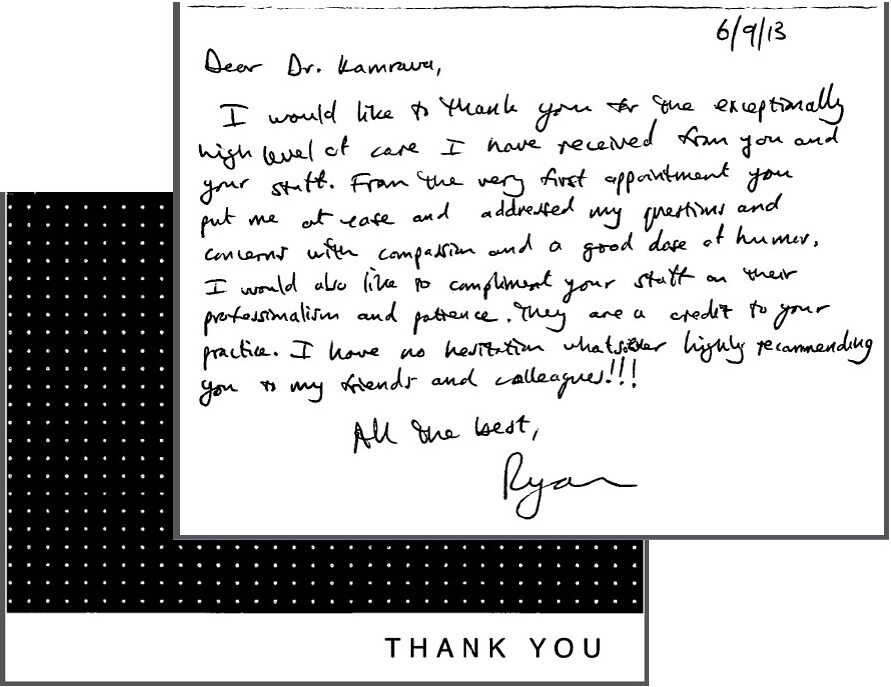 6/9/13
Dear Dr. Kamrava,
I would like to thank you for the exceptionally
high level of care I have received from you and
your staff. From the very first appointment you
put me at ease and addressed my questions and
concerns with compassion and a good dose of humor.
I would also like to compliment your staff on their
professionalism and patience. They are a credit to your
practice. I have no hesitation whatsoever highly recommending
you to my friends and colleagues!!!
All the best,
Ryan
THANK YOU